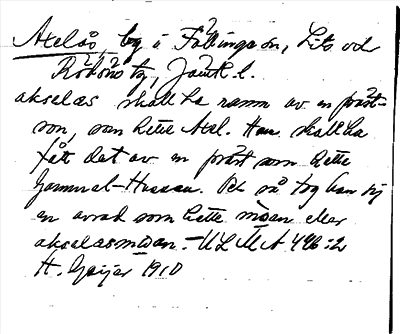 Axelås, by i Fållingeön, Lits och
Rödöns tg, Jämtl. l.
akselas skall ha namn av en präst-
son, som hette Axel. Han skall ha
fått det av en präst som hette
Gammal-Hassan. Och så tog han sej
en arrak som hette måan eller
akselasmåan. – ULMA 446:2
H. Geijer 1910